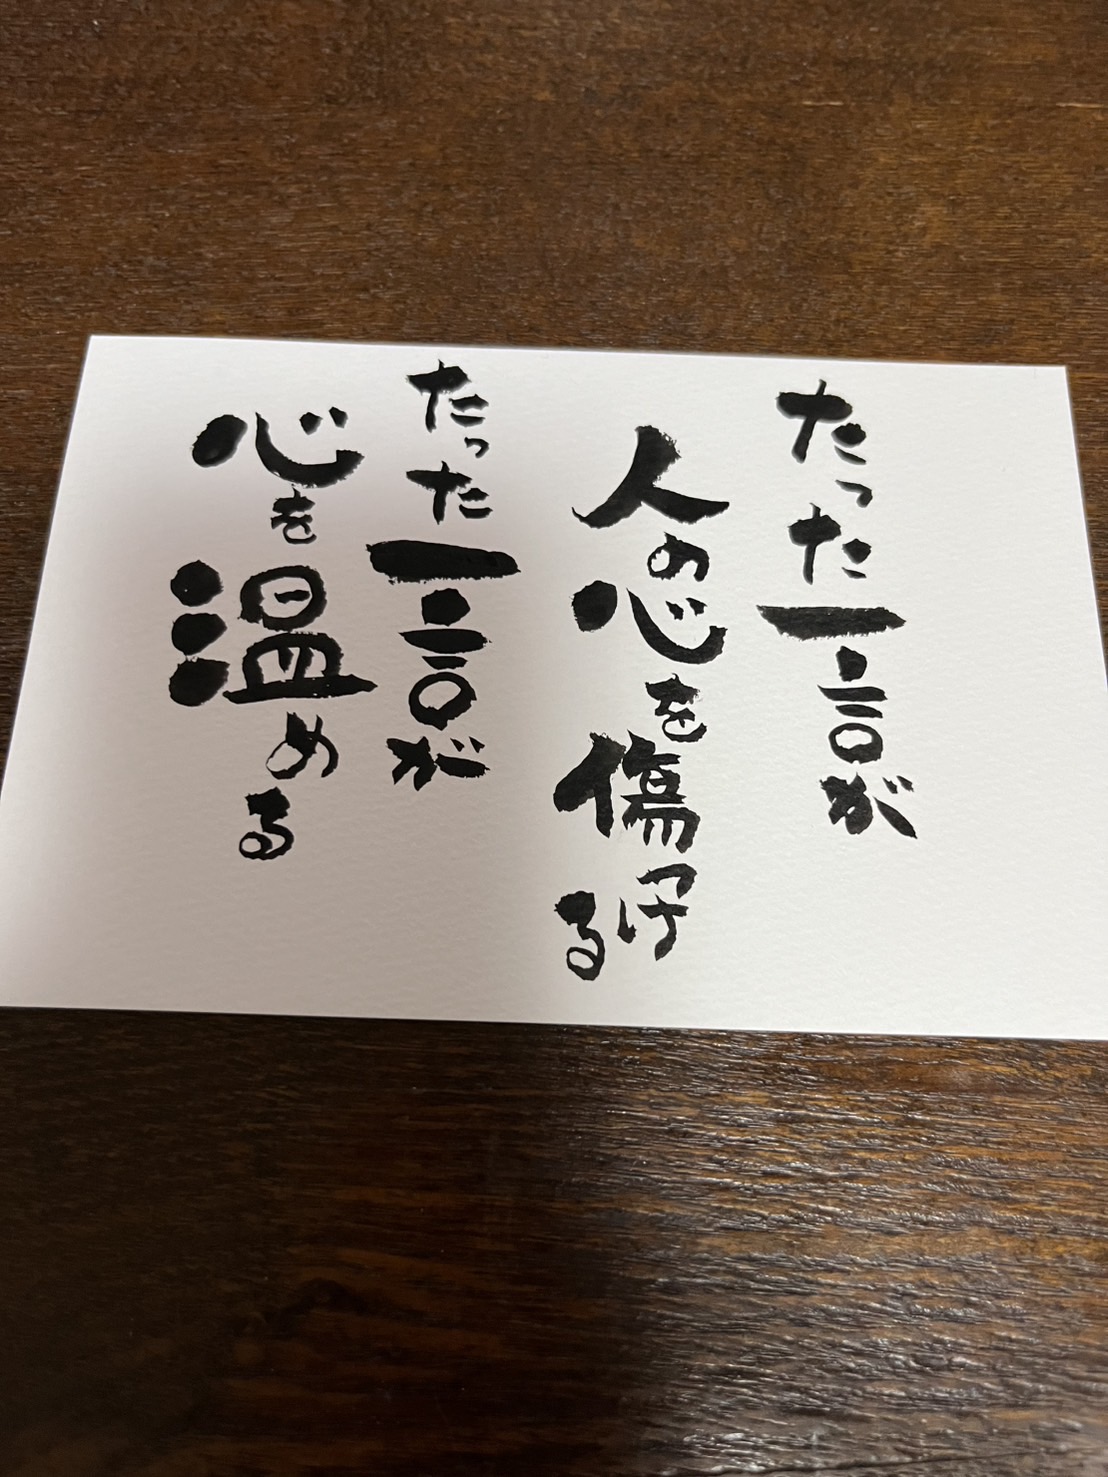 たった一言が
人の心を傷つける
たった一言が
心を温める